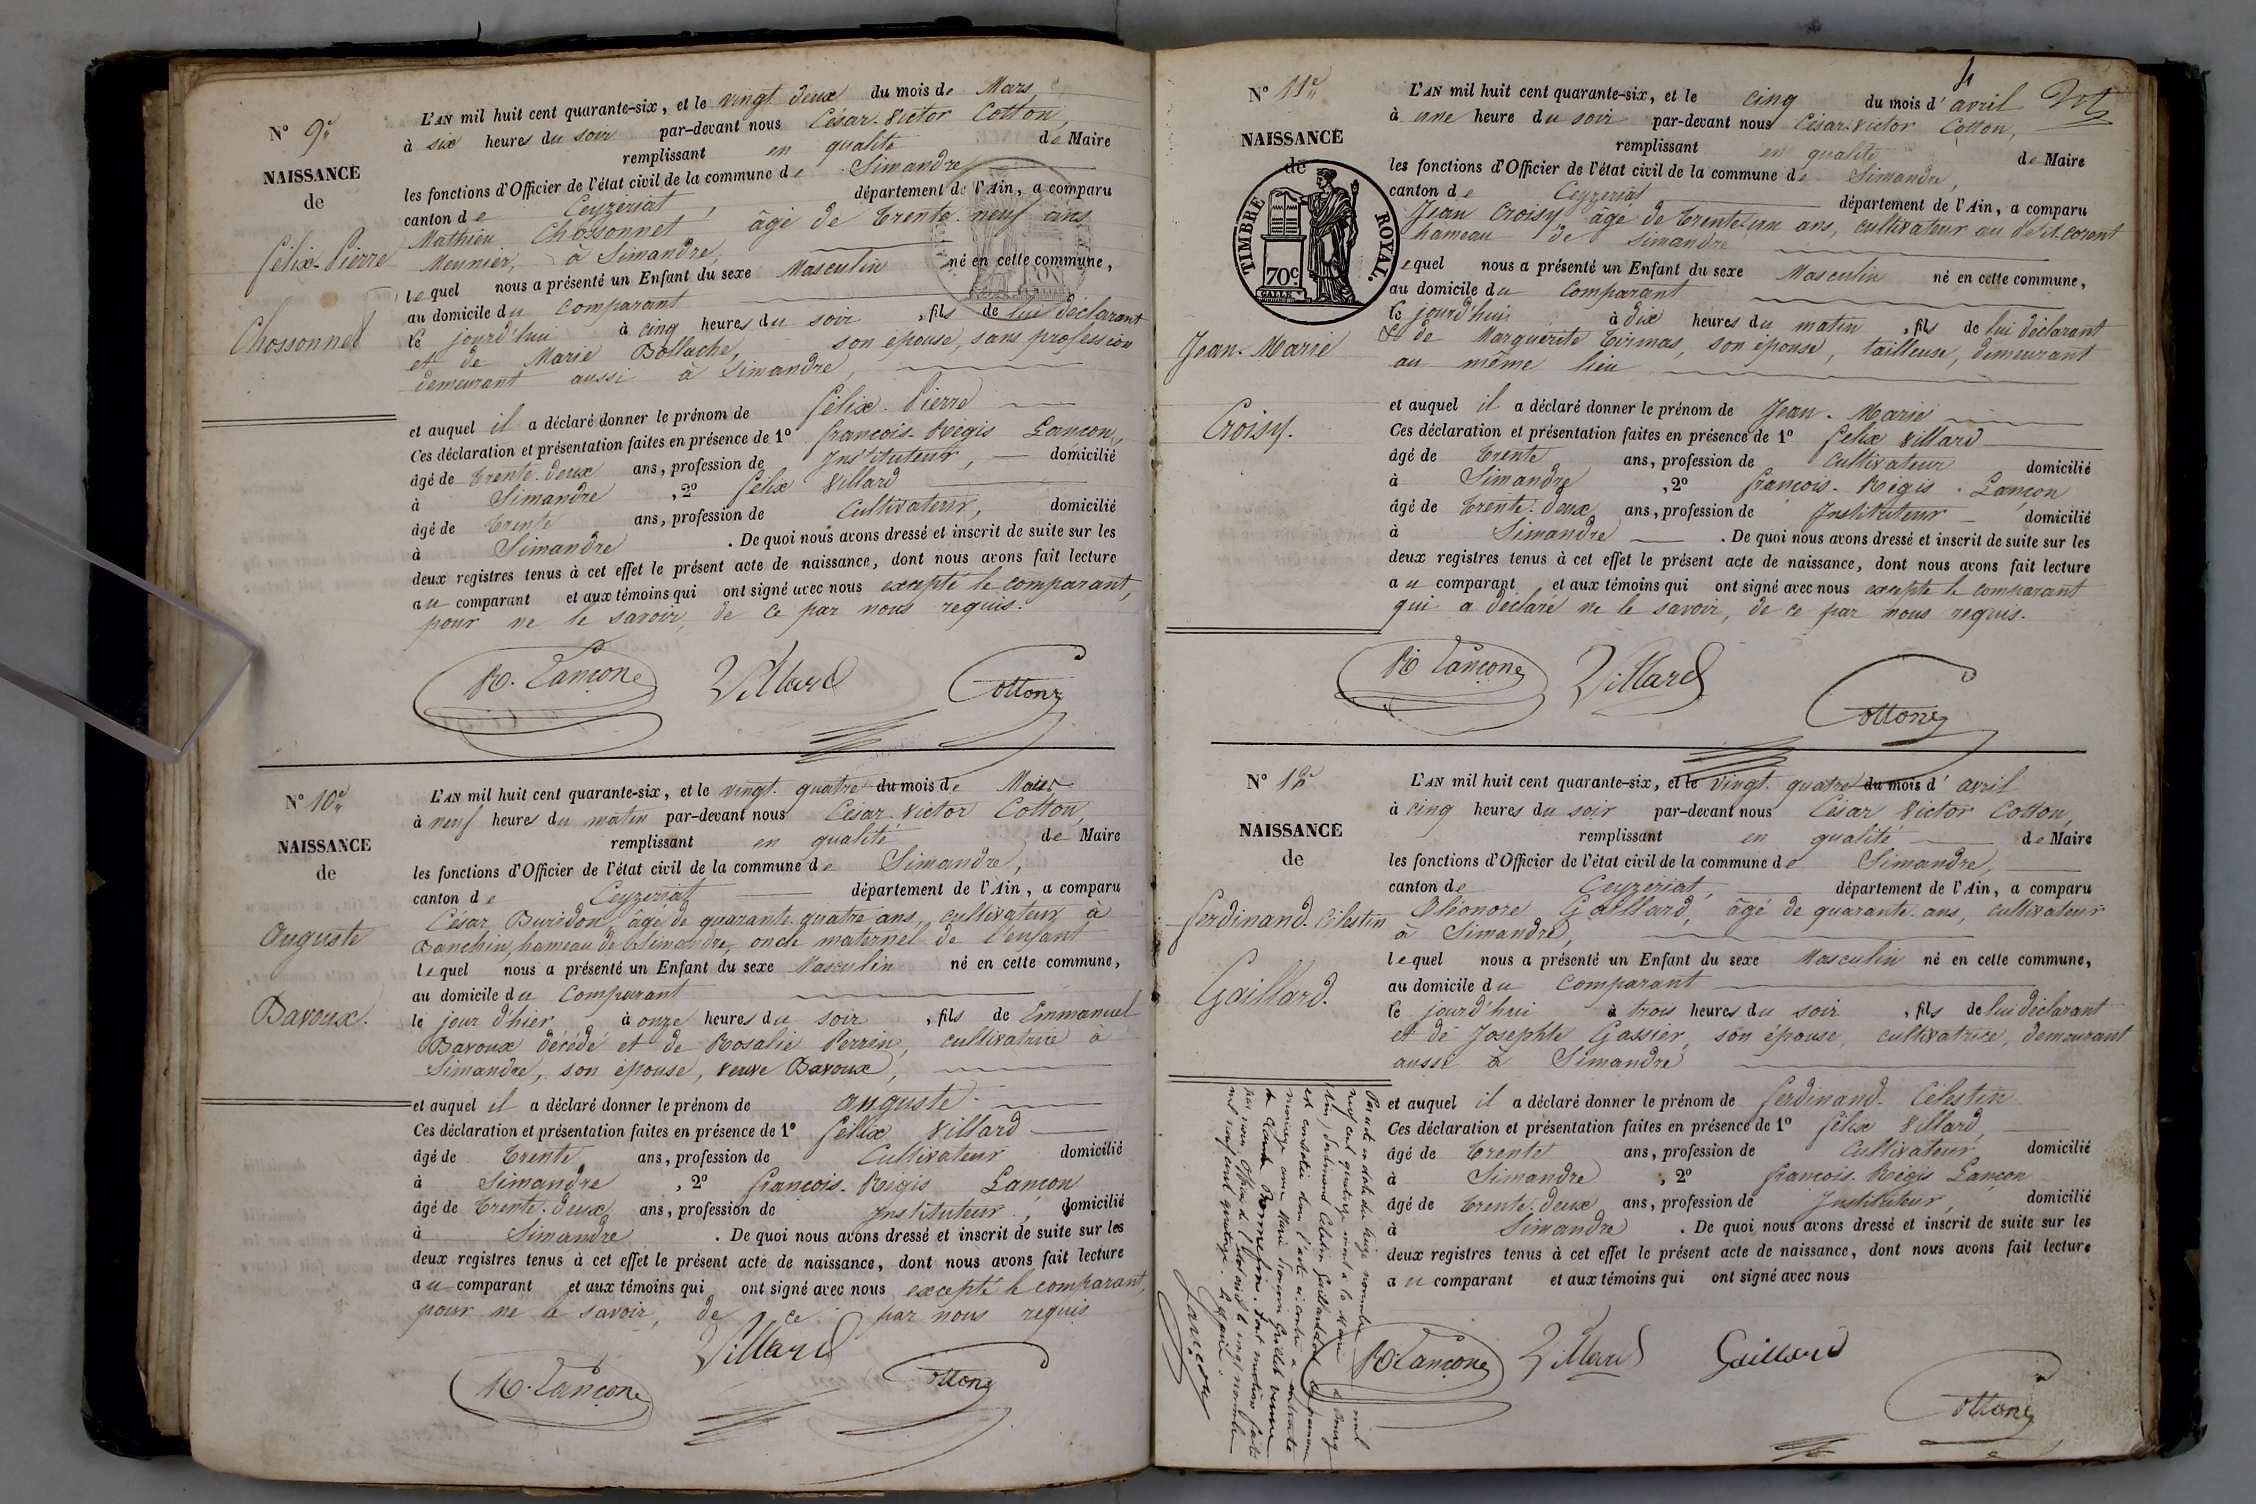 N° 9e
NAISSANCE
de
Félix-Pierre
Chossonnet
L'AN mil huit cent quarante-six, et le vingt deux du mois de Mars,
à six heures du soir par-devant nous César-Victor Cotton,
remplissant en qualité de Maire
les fonctions d'Officier de l'état civil de la commune de Simandre,
canton de Ceyzeriat, département de l'Ain, a comparu
Mathieu Chossonnet âgé de trente-neuf ans
Meunier, à Simandre,
lequel nous a présenté un Enfant du sexe Masculin né en cette commune,
au domicile du comparant
le jourd'hui à cinq heures du soir, fils de lui déclarant
et de Marie Bollache, son épouse, sans profession
demeurant aussi à Simandre,
et auquel il a déclaré donner le prénom de Félix-Pierre
Ces déclaration et présentation faites en présence de 1° françois-Régis Lançon,
âgé de trente-deux ans, profession de Instituteur, domicilié
à Simandre, 2° félix Villard
âgé de trente ans, profession de Cultivateur, domicilié
à Simandre. De quoi nous avons dressé et inscrit de suite sur les
deux registres tenus à cet effet le présent acte de naissance, dont nous avons fait lecture
au comparant et aux témoins qui ont signé avec nous excepté le comparant,
pour ne le savoir, de ce par nous requis.
R. Lançon Villard Cotton
N° 10e
NAISSANCE
de
Auguste
Bavoux.
L'AN mil huit cent quarante-six, et le vingt-quatre du mois de Mars
à neuf heures du matin par-devant nous César-Victor Cotton,
remplissant en qualité de Maire
les fonctions d'Officier de l'état civil de la commune de Simandre,
canton de Ceyzeriat département de l'Ain, a comparu
César Buridon âgé de quarante-quatre ans, cultivateur à
Banchin, hameau de Simandre, oncle maternel de l'enfant
lequel nous a présenté un Enfant du sexe Masculin né en cette commune,
au domicile du comparant
le jour d'hier à onze heures du soir, fils de Emmanuel
Bavoux décédé et de Rosalie Perrin, cultivatrice à
Simandre, son épouse, veuve Bavoux,
et auquel il a déclaré donner le prénom de auguste.
Ces déclaration et présentation faites en présence de 1° félix Villard
âgé de trente ans, profession de Cultivateur domicilié
à Simandre, 2° françois-Régis Lançon
âgé de trente-deux ans, profession de Instituteur, domicilié
à Simandre. De quoi nous avons dressé et inscrit de suite sur les
deux registres tenus à cet effet le présent acte de naissance, dont nous avons fait lecture
au comparant et aux témoins qui ont signé avec nous excepté le comparant,
pour ne le savoir, de ce par nous requis
Villard
R. Lançon Cotton
4
N° 11e
NAISSANCE
de
TIMBRE ROYAL.
70c
Jean-Marie
Croisy.
L'AN mil huit cent quarante-six, et le cinq du mois d'avril
à une heure du soir par-devant nous César-Victor Cotton,
remplissant en qualité de Maire
les fonctions d'Officier de l'état civil de la commune de Simandre,
canton de Ceyzeriat département de l'Ain, a comparu
Jean Croisy âgé de trente-un ans, cultivateur au petit-Corent
hameau de Simandre
lequel nous a présenté un Enfant du sexe Masculin né en cette commune,
au domicile du comparant
le jourd'hui à dix heures du matin, fils de lui déclarant
et de Marguerite Tirmas, son épouse, tailleuse, demeurant
au même lieu
et auquel il a déclaré donner le prénom de Jean-Marie
Ces déclaration et présentation faites en présence de 1° félix Villard
âgé de trente ans, profession de Cultivateur domicilié
à Simandre, 2° françois-Régis-Lançon
âgé de trente-deux ans, profession de Instituteur domicilié
à Simandre. De quoi nous avons dressé et inscrit de suite sur les
deux registres tenus à cet effet le présent acte de naissance, dont nous avons fait lecture
au comparant et aux témoins qui ont signé avec nous excepté le comparant
qui a déclaré ne le savoir, de ce par nous requis.
R Lançon Villard
Cotton
N° 12e
NAISSANCE
de
ferdinand-Célestin
Gaillard.
L'AN mil huit cent quarante-six, et le vingt-quatre du mois d'avril
à cinq heures du soir par-devant nous César Victor Cotton,
remplissant en qualité de Maire
les fonctions d'Officier de l'état civil de la commune de Simandre,
canton de Ceyzeriat, département de l'Ain, a comparu
Eléonore Gaillard, âgé de quarante-ans, cultivateur
à Simandre,
lequel nous a présenté un Enfant du sexe Masculin né en cette commune,
au domicile du comparant
le jourd'hui à trois heures du soir, fils de lui déclarant
et de Josephte Gassier, son épouse, cultivatrice, demeurant
aussi à Simandre
et auquel il a déclaré donner le prénom de ferdinand-Célestin
Ces déclaration et présentation faites en présence de 1° félix Villard
âgé de trente ans, profession de Cultivateur domicilié
à Simandre, 2° françois-Régis Lançon
âgé de trente-deux ans, profession de Instituteur, domicilié
à Simandre. De quoi nous avons dressé et inscrit de suite sur les
deux registres tenus à cet effet le présent acte de naissance, dont nous avons fait lecture
au comparant et aux témoins qui ont signé avec nous
R. Lançon Villard Gaillard
Cotton
Par acte en date du seize novembre mil
neuf cent quatorze à la Mairie Bourg
(Ain) Ferdinand Célestin Gaillard
est constaté dans l'acte ci contre a contracté
mariage avec Marie Grillet veuve
de Claude Romnefin. Dont mention faite
par nous Officier de l'état civil le vingt novembre
mil neuf cent quatorze.
Lançon